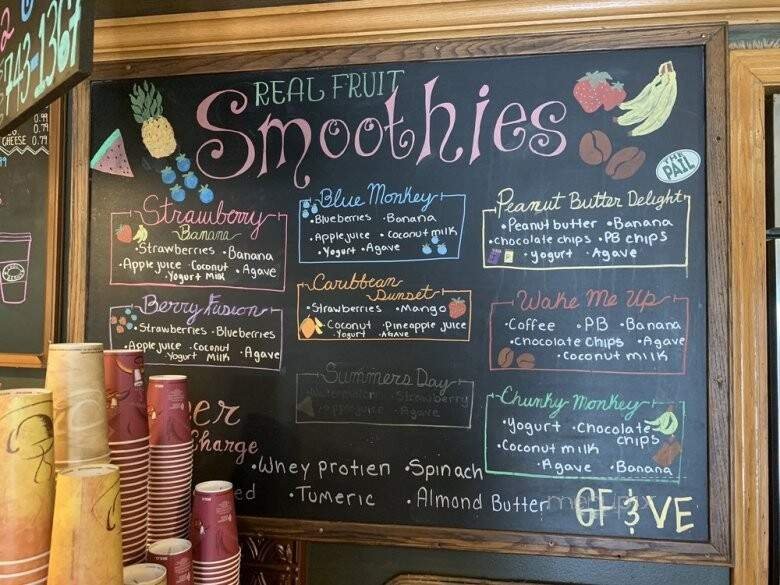 743-1367
0.99
0.79
CHEESE 0.79
REAL FRUIT
Smoothies
THE PAIL
Strawberry
Banana
•Strawberries •Banana
•Apple juice •Coconut •Agave
•Yogurt Milk
Berry Fusion
•Strawberries •Blueberries
•Apple juice •Coconut •Agave
•Yogurt Milk
Blue Monkey
•Blueberries •Banana
•Apple juice •Coconut milk
•Yogurt •Agave
Caribbean
Sunset
•Strawberries •Mango
•Coconut •Pineapple juice
•Yogurt •Agave
Summers Day
•Watermelon •Strawberry
•Apple juice •Agave
Peanut Butter Delight
•Peanut butter •Banana
•chocolate chips •PB chips
•yogurt •Agave
Wake Me Up
•Coffee •PB •Banana
•Chocolate Chips •Agave
•Coconut milk
Chunky Monkey
•Yogurt •Chocolate
chips
•Coconut milk
•Agave •Banana
er
Charge
ed
•Whey protien •Spinach
•Tumeric •Almond Butter
GF & VE